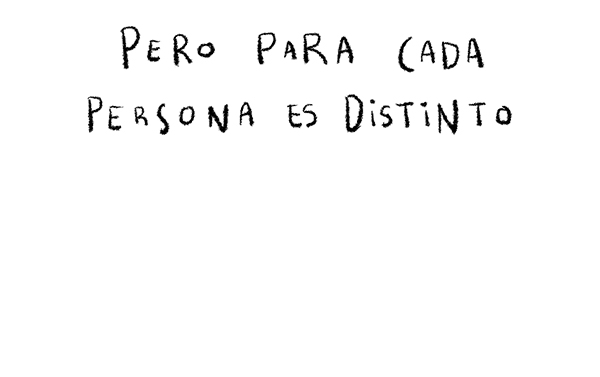 PERO PARA CADA
PERSONA ES DiSTiNTO